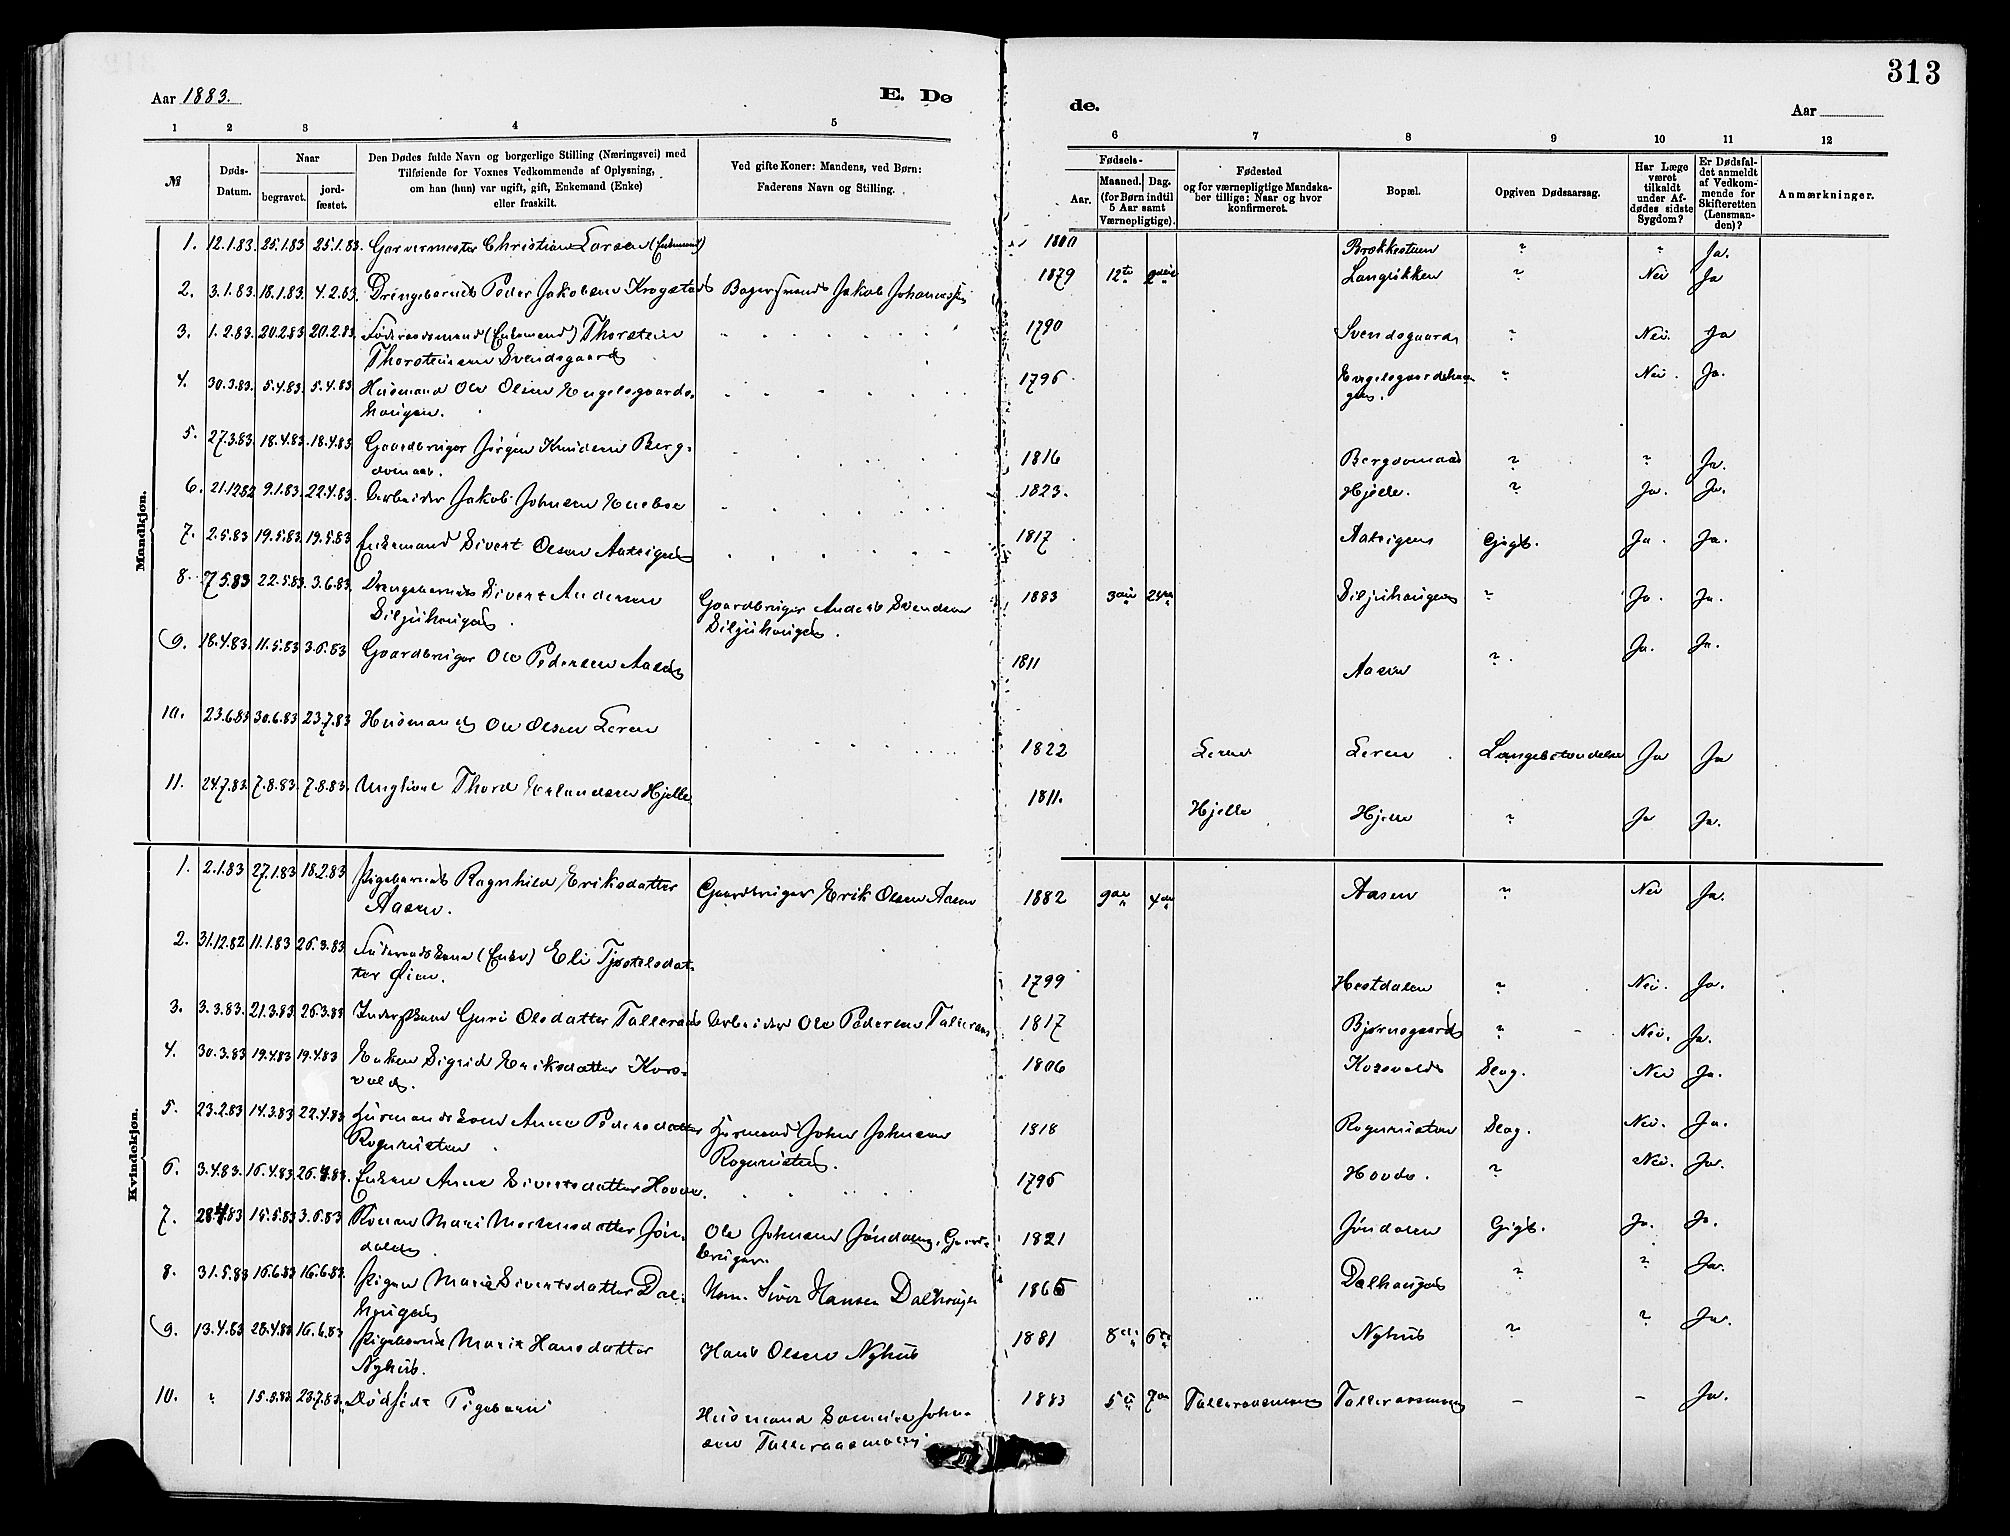 313
Aar 1883.
E. Dø
de.
Aar
1 2 3 4 5 6 7 8 9 10 11 12
№
Døds-
Datum.
Naar
begravet.
jord-
fæstet.
Den Dødes fulde Navn og borgerlige Stilling (Næringsvei) med
Tilføiende for Voxnes Vedkommende af Oplysning,
om han (hun) var ugift, gift, Enkemand (Enke)
eller fraskilt.
Ved gifte Koner: Mandens, ved Børn:
Faderens Navn og Stilling.
Fødsels-
Aar.
Maaned.
Dag.
(for Børn indtil
5 Aar samt
Værnepligtige).
Fødested
og for værnepligtige Mandska-
ber tillige: Naar og hvor
konfirmeret.
Bopæl.
Opgiven Dødsaarsag.
Har Læge
været
tilkaldt
under Af-
dødes sidste
Sygdom?
Er Dødsfal-
det anmeldt
af Vedkom-
mende for
Skifteretten
(Lensman-
den)?
Anmærkninger.
Mandkjøn.
1. 12.1.83. 25.1.83 25.1.83. Garvermester Christian Larsen (Enkemand) 1800 ? ? Ja.
2. 3.1.83. 18.1.83. 4.2.83. Drengebarnet Peder Jakobsen Krogstad Jakob 1879 12te ? Nei Ja
3. 1.2.83. 20.2.83 20.2.83. Føderaadsmand (Enkemand) Thorstein 1790 Svendsgaard ? Nei. Ja
Thorsteinsen Svendsgaard
4. 30.3.83. 5.4.83. 5.4.83 Husmand Ole Olsen Engelsgaards- 1796 Engelsgaardshau- ? Nei. Ja.
haugen. gen.
5. 27.3.83. 18.4.83. 18.4.83 Gaardbruger Jørgen Knudsen Berg- 1816 ? ? Ja.
6. 21.1282 9.1.83. 22.4.83. Arbeider Jakob Johnsen 1823. Hjelle. ? Ja. Ja.
7. 2.5.83 19.5.83. 19.5.83 Enkemand Sivert Olsen 1817 Gigt. Ja. Ja.
8. 7.5.83 22.5.83. 3.6.83. Drengebarnet Sivert Andersen Gaardbruger Anders Svendsen 1883 3die Siljuhaugen ? Ja. Ja.
Siljuhaugen. Siljuhaugen.
9. 18.4.83. 11.5.83 3.6.83 Gaardbruger Ole Pedersen Aasen 1811 Aasen ? Ja. Ja.
10. 23.6.83 30.6.83 23.7.83 Husmand Ole Olsen Leren 1822 Leren Leren Ja Ja
11. 24.7.83. 7.8.83. 7.8.83. Thord Erlandsen Hjelle 1811. Hjelle Hjelle ? Ja Ja.
Kvindekjøn.
1. 2.1.83 27.1.83 18.2.83 Pigebarnet Ragnhild Eriksdatter Gaardbruger Erik Olsen Aasen 1882 4de Aasen ? Nei Ja.
Aasen.
2. 31.12.82 11.1.83 26.3.83. Føderaadskone (Enke) Eli Tjøstelsdat- 1799 Hestdalen ? Nei. Ja.
ter Øien.
3. 3.3.83. 21.3.83 26.3.83 Guri Olsdatter Talleraas Arbeider Ole Pedersen Talleraas 1817 Bjørnsgaard ? Nei. Ja.
4. 30.3.83 19.4.83 19.4.83 Enken Sigrid Eriksdatter Kors- 1806 Korsvold Slag. Nei Ja.
vold.
5. 23.2.83 14.3.83 22.4.83 Anne Pedersdatter John Johnsen 1818 Slag. Nei. Ja.
6. 3.4.83. 16.4.83 26.4.83. Enken Anne Sivertsdatter Hovde. 1796 Hovde. ? Nei. Ja.
7. 28.4.83 16.5.83 3.6.83 Konen Mari Mortensdatter Jøn- Ole Johnsen Jøndalen, Gaard- 1821 Jøndalen Gigt. Ja. Ja.
dalen. bruger.
8. 31.5.83 16.6.83 16.6.83. Pigen Marie Sivertsdatter Dal- Husm. Siver Hansen Dalhaugen 1865 Dalhaugen ? ? Ja.
haugen
9. 13.4.83 28.4.83 16.6.83 Pigebarnet Marie Hansdatter Hans Olsen Nyhus 1881 8de 6te Nyhus ? ? Ja.
Nyhus.
10. " 15.3.83 23.7.83. Dødfødt Pigebarn Husmand John- 1883 5te - - Ja.
sen